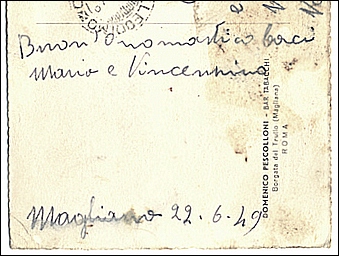 Buon Onomastico baci
Mario e Vincenzina
Magliana 22.6.49
DOMENICO PESCOLLONI - BAR TABACCHI
Borgata del Trullo (Magliana)
ROMA